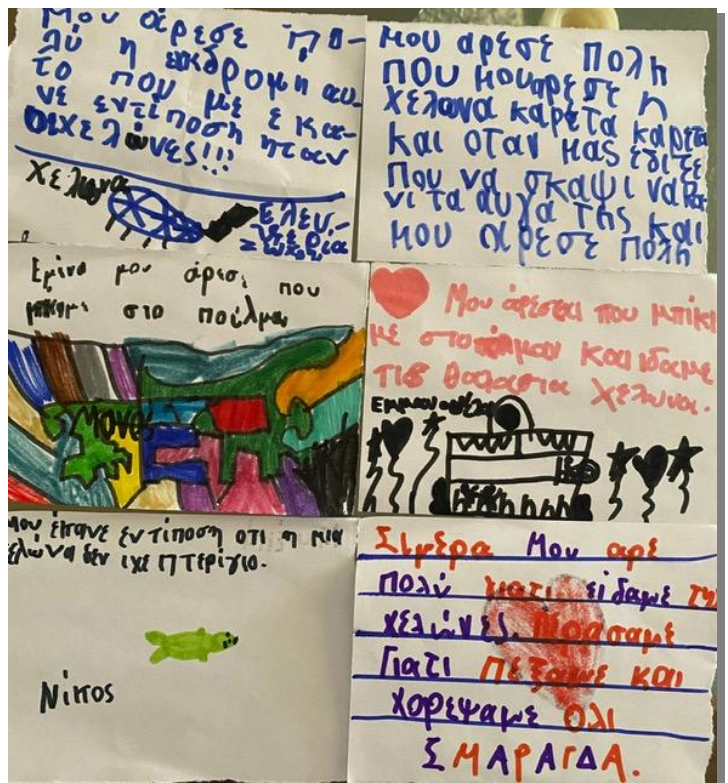 Μου άρεσε πο-
λύ η εκδρομη αυ-
το που με έκα-
νε εντίποση ηταν
οι χελώνες!!!
Χελωνα
Ελευ-
θερία
Μου αρεσε πολη
που μου αρεσε η
χελωνα καρετα καρετα
και οταν μας εδιξε
που να σκαψι να κα
νι τα αυγα της και
μου αρεσε πολη
Εμένα μου άρεσι που
μπικαμε στο πούλμαν
Μάνος
Μου άρεσαι που μπίκα
με στο και ιδαμε
τις θαλασια χελωνα.
Εμμανουέλα
Μου έκανε εντίποση οτι η μια
χελώνα δεν ιχε πτερίγιο.
Νίκος
Σιμερα Μου αρε
πολύ γιατι είδαμε τη
χελώνες. Μορασαμε
Γιατι πεξαμε και
χορεψαμε ολι
ΣΜΑΡΑΓΔΑ.